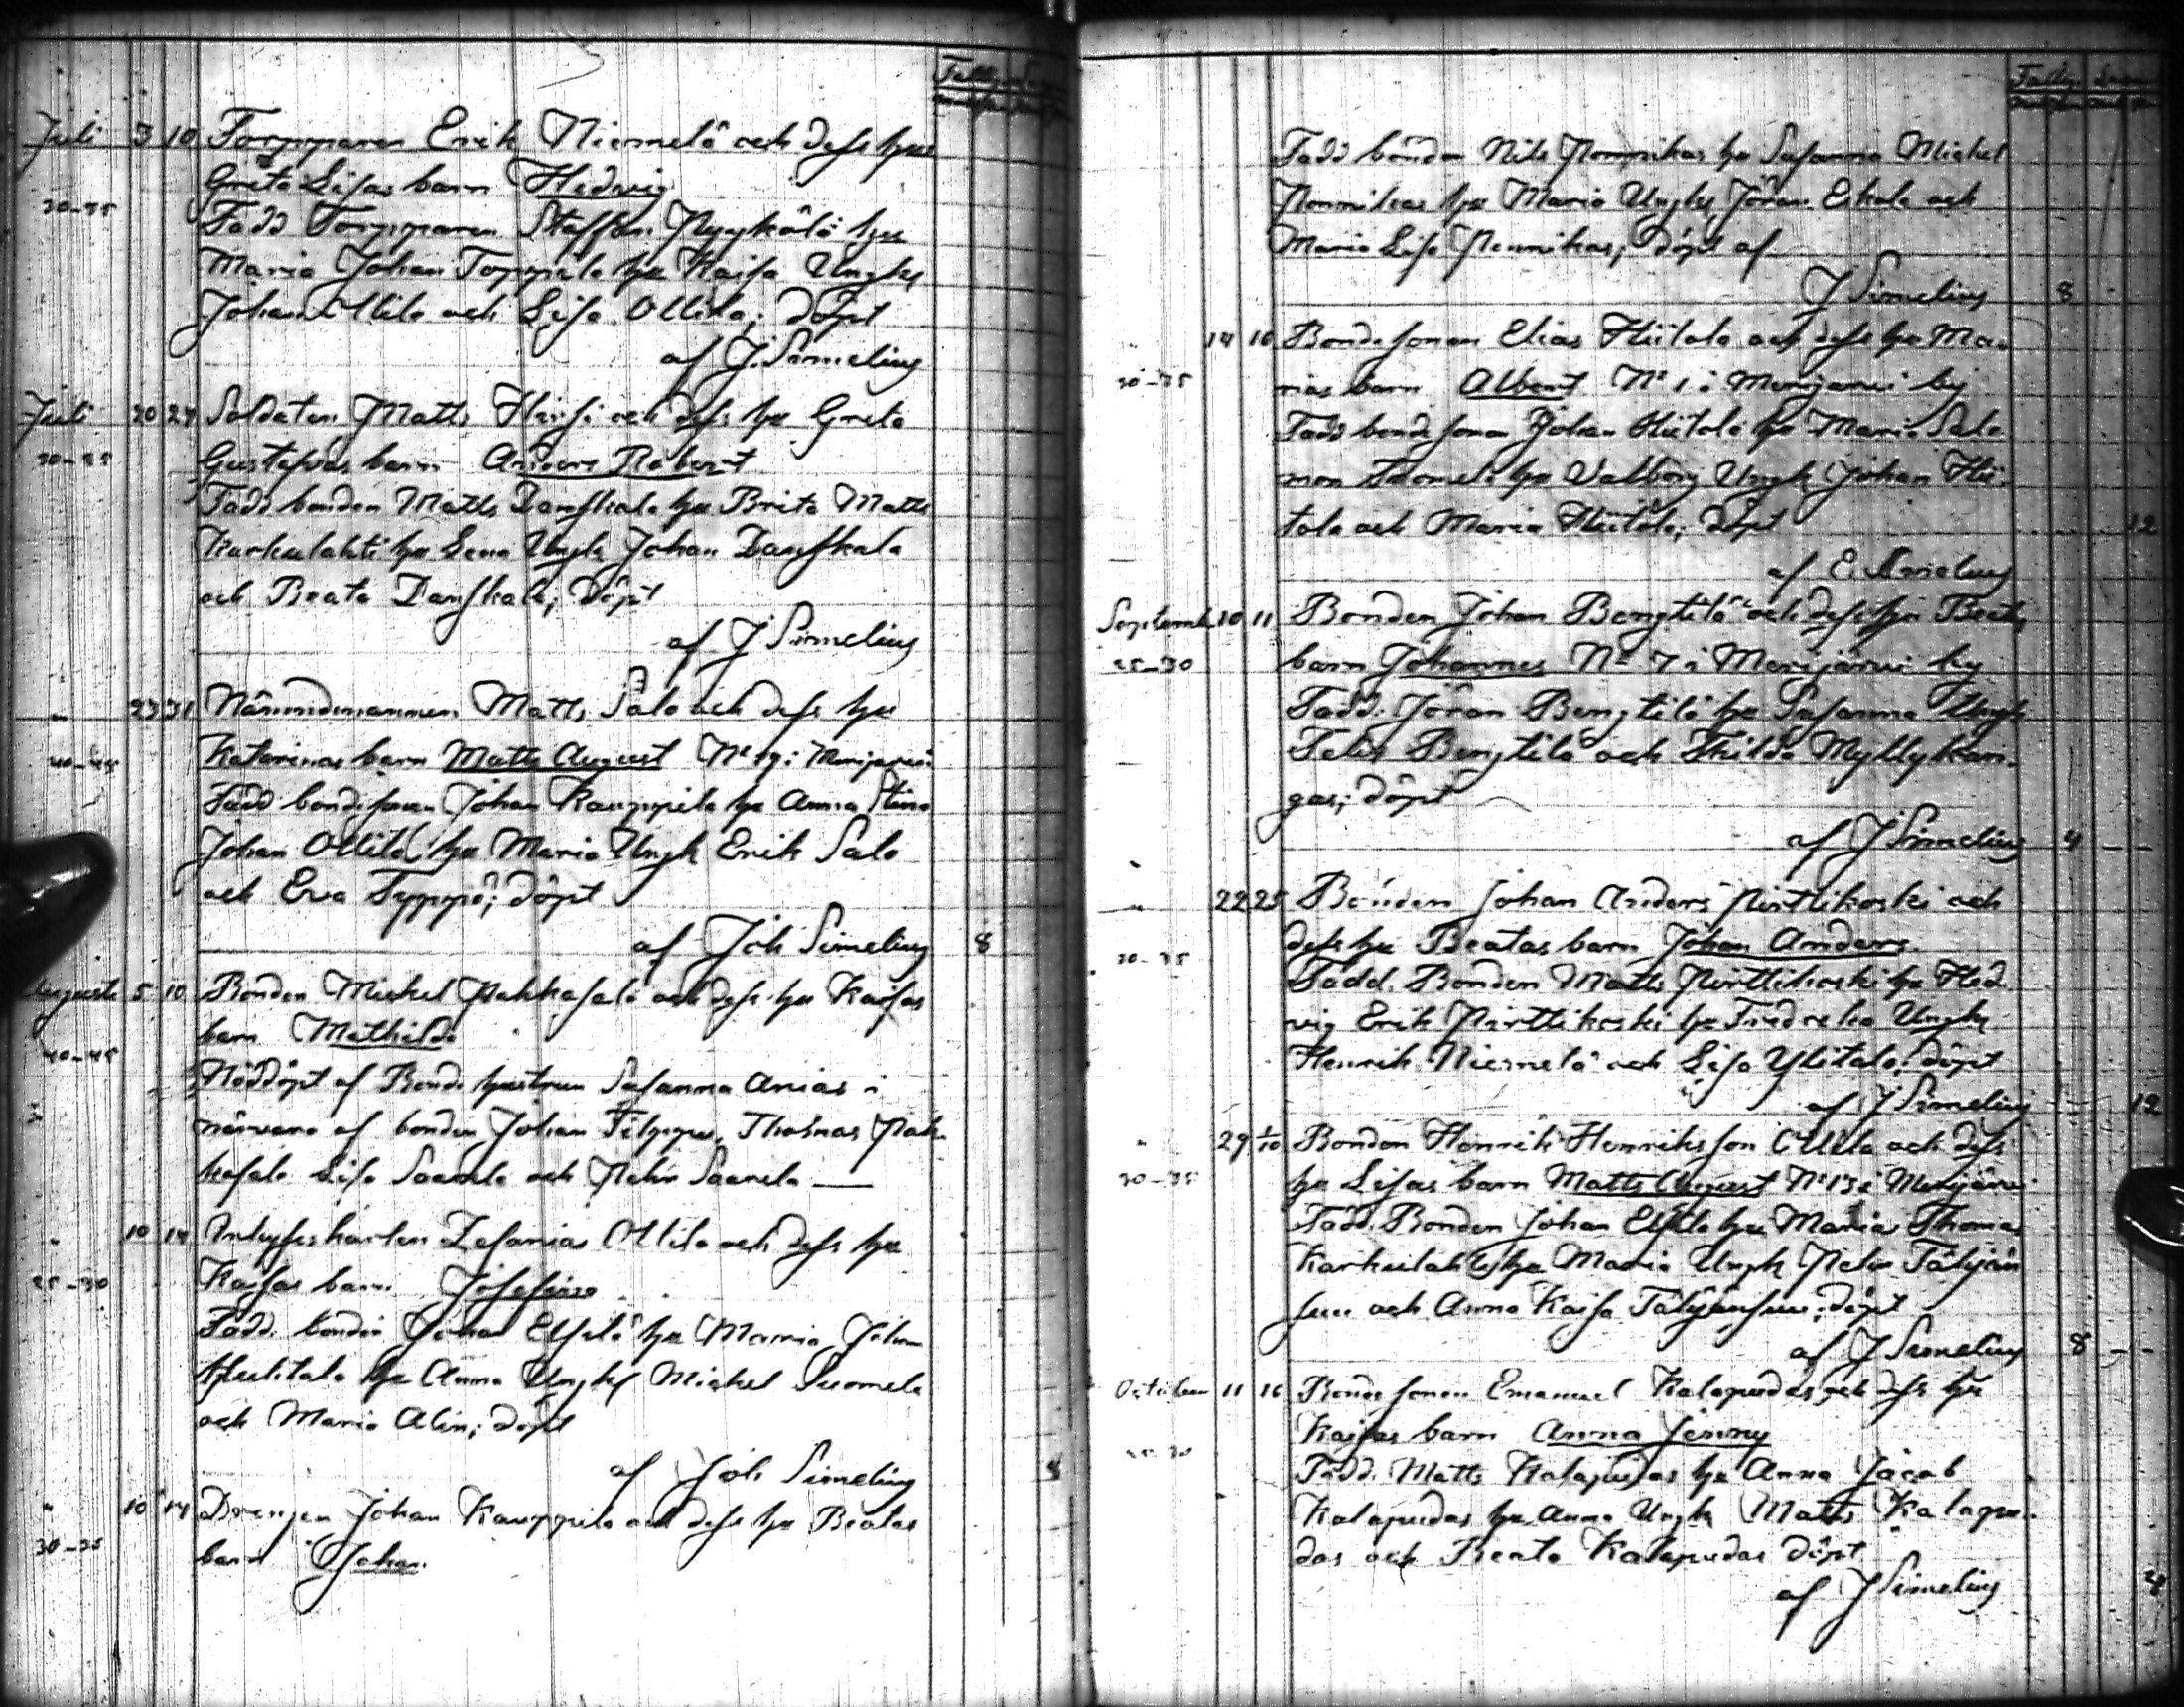 Juli 3 10 Torpparen Erik Niemelä och dess hu
Greta Lisas barn Hedvig
30-35
Fadd Torpparen Staffan Pyykölä hu
Maria Johan Toppila hu Kaisa Ungk
Johan Ollila och Lisa Ollila; döpt
af J. Simelius
Juli 20 24 Soldaten Matts Heisi och dess hu Greta
30-35 Gustafvas barn Anders Robert
Fadd bonden Matts Danskala hu Brita Matts
Karhulahti hu Lena Ungk Johan Danskala
och Beata Danskala; döpt
af J Simelius
" 23 31 Nämndemannen Matts Salo och dess hu
40-45 Katarinas barn Matts August No 19 i Merijärvi
Fadd bondesonen Johan Kauppila hu Anna Stina
Johan Ollila hu Maria Ungk Erik Salo
och Eva Typpö; döpt
af Joh Simelius 8
Augusti 5 10 Bonden Mickel Pahkasalo och dess hu Kaisas
barn Mathilda
40-45
Nöddöpt af Bonde hustrun Susanna Anias i
närvaro af bonden Johan Filppu, Thomas Pah-
kasalo Lisa Saarela och Petter Saarela —
" 10 14 Inhyseskarlen Zefanias Ollila och dess hu
25-30 Kaisas barn Josefina
Fadd. bonden Johan Elfilä hu Maria Johan
hu Anna Ungk Mickel Suomela
och Maria Alin; döpt
af Joh Simelius 8
" 10 14 Drengen Johan Kauppila och dess hu Beatas
30-35 barn Johan.
Fadd bonden Nils Pennikas hu Susanna Mickel
Pennikas hu Maria Ungk Jöran Eskola och
Maria Lisa Pennikas; döpt af
J Simelius 8
14 16 Bondesonen Elias Hiitola och dess hu Ma-
30-35 rias barn Albert No 1 i Merijärvi by
Fadd bondesonen Johan Hiitola hu Maria Salo-
mon Suomela hu Valborg Ungk Johan Hii-
tola och Maria Hiitola; döpt 12
af E. Simelius
Septemb 10 11 Bonden Johan Bengtilä och dess hu Beatas
25-30 barn Johannes No 7 i Merijärvi by
Fadd. Jöran Bengtilä hu Susanna Ungk
Felix Bengtilä och Hilda Myllykan-
gas; döpt
af J Simelius 4
" 22 25 Bonden Johan Anders Pirttikoski och
dess hu Beatas barn Johan Anders
30-35
Fadd. Bonden Matts Pirttikoski hu Hed-
vig Erik Pirttikoski hu Fredrika Ungk
Henrik Niemelä och Lisa Ylitalo; döpt
af J Simelius 12
" 29 1/10 Bonden Henrik Henriksson Ollila och dess
30-35 hu Lisas barn Matts August No 13 i Merijärvi
Fadd. Bonden Johan Elfilä hu Maria Thomas
Karhulahti hu Maria Ungk Petter Täljän-
suu och Anna Kaisa Täljänsuu; döpt
af J Simelius 8
October 11 16 Bondesonen Emanuel Kalapudas och dess hu
Kaisas barn Anna Jenny
25-30
Fadd. Matts Kalapudas hu Anna Jacob
Kalapudas hu Anna Ungk Matts Kalapu-
das och Beata Kalapudas döpt
af J Simelius 4